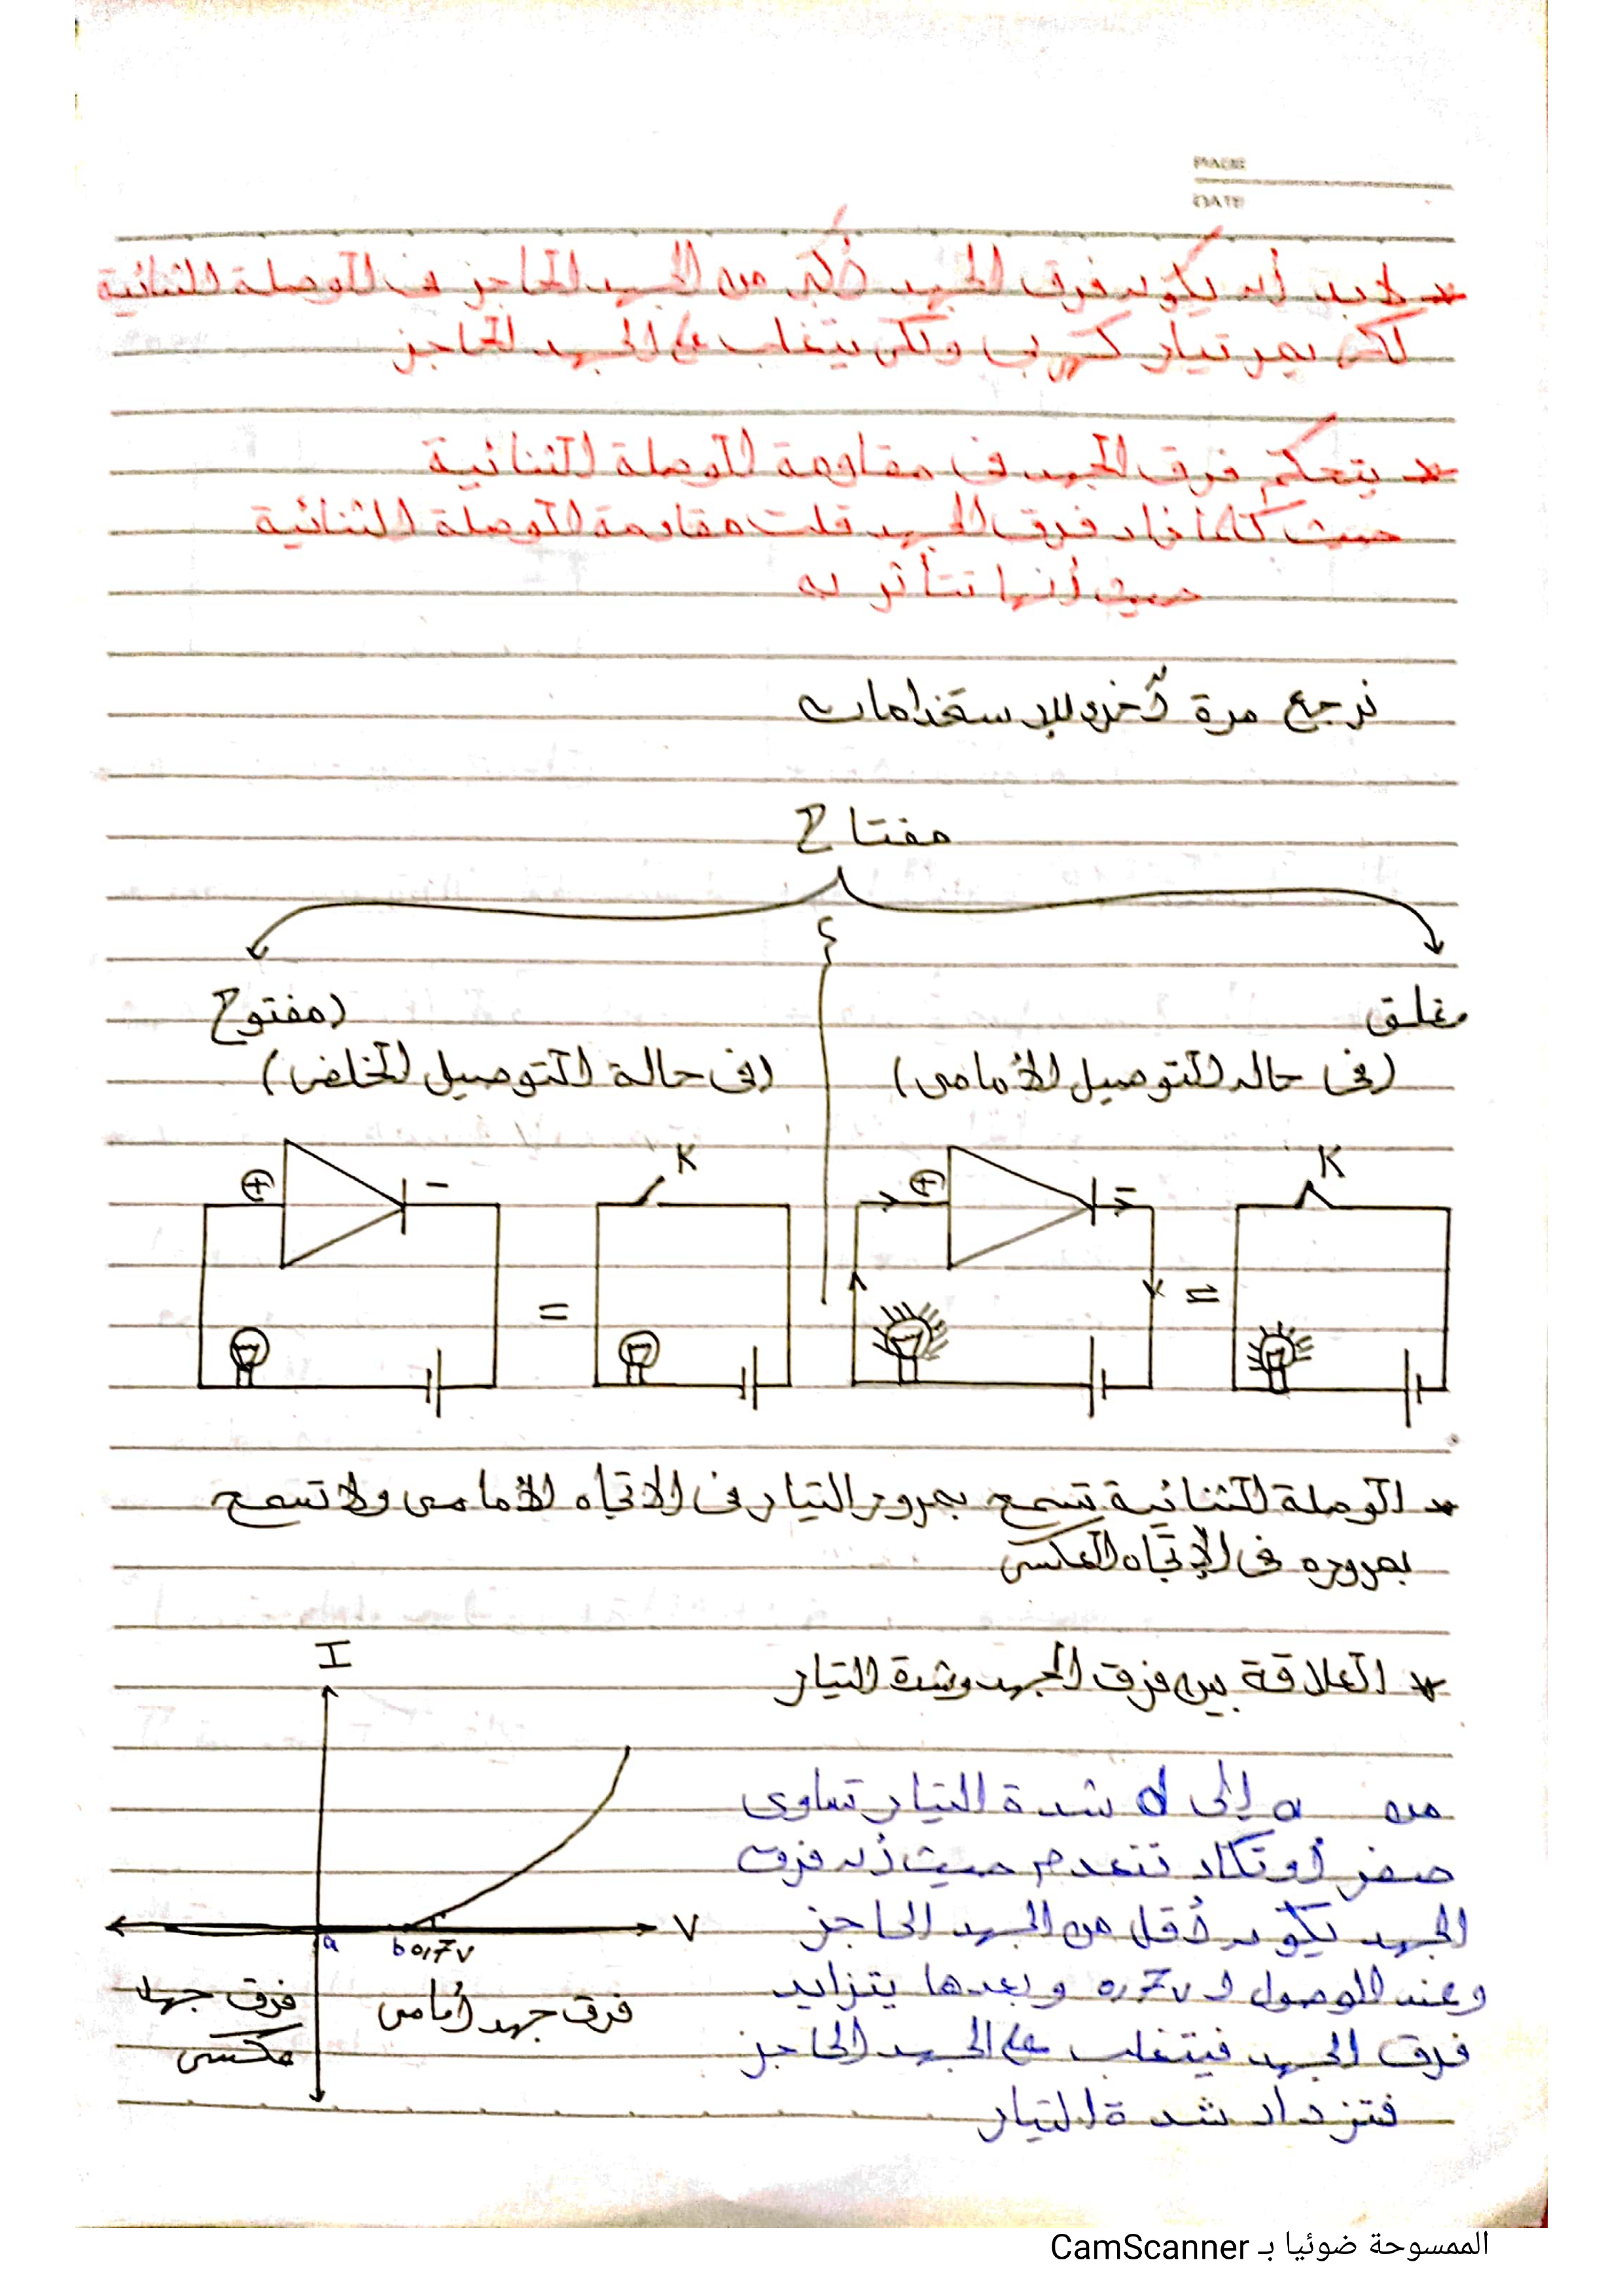 PAGE
DATE
* لابد أن يكون فرق الجهد أكبر من الجهد الحاجز في الوصلة الثنائية
لكى يمر تيار كهربى ولكى يتغلب على الجهد الحاجز
* يتحكم فرق الجهد فى مقاومة الوصلة الثنائية
حيث كلما زاد فرق الجهد قلت مقاومة الوصلة الثنائية
حيث أنها تتأثر به
نرجع مرة أخرى للإستخدامات
مفتاح
مغلق
(مفتوح
(فى حاله التوصيل الأمامى)
(فى حالة التوصيل الخلفى)
⊕ - K ⊕ - K
= =
* الوصلة الثنائية تسمح بمرور التيار فى الاتجاه الأمامى ولا تسمح
بمروره فى الإتجاه العكسى
* العلاقة بين فرق الجهد وشدة التيار
I
من a إلى d شدة التيار تساوى
صفر أو تكاد تنعدم حيث أن فرق
الجهد يكون أقل من الجهد الحاجز
V
a b 0,7 v
وعند الوصول لـ 0,7v وبعدها يتزايد
فرق الجهد فيتغلب على الجهد الحاجز
فتزداد شدة التيار
فرق جهد أمامى
فرق جهد
عكسى
الممسوحة ضوئيا بـ CamScanner